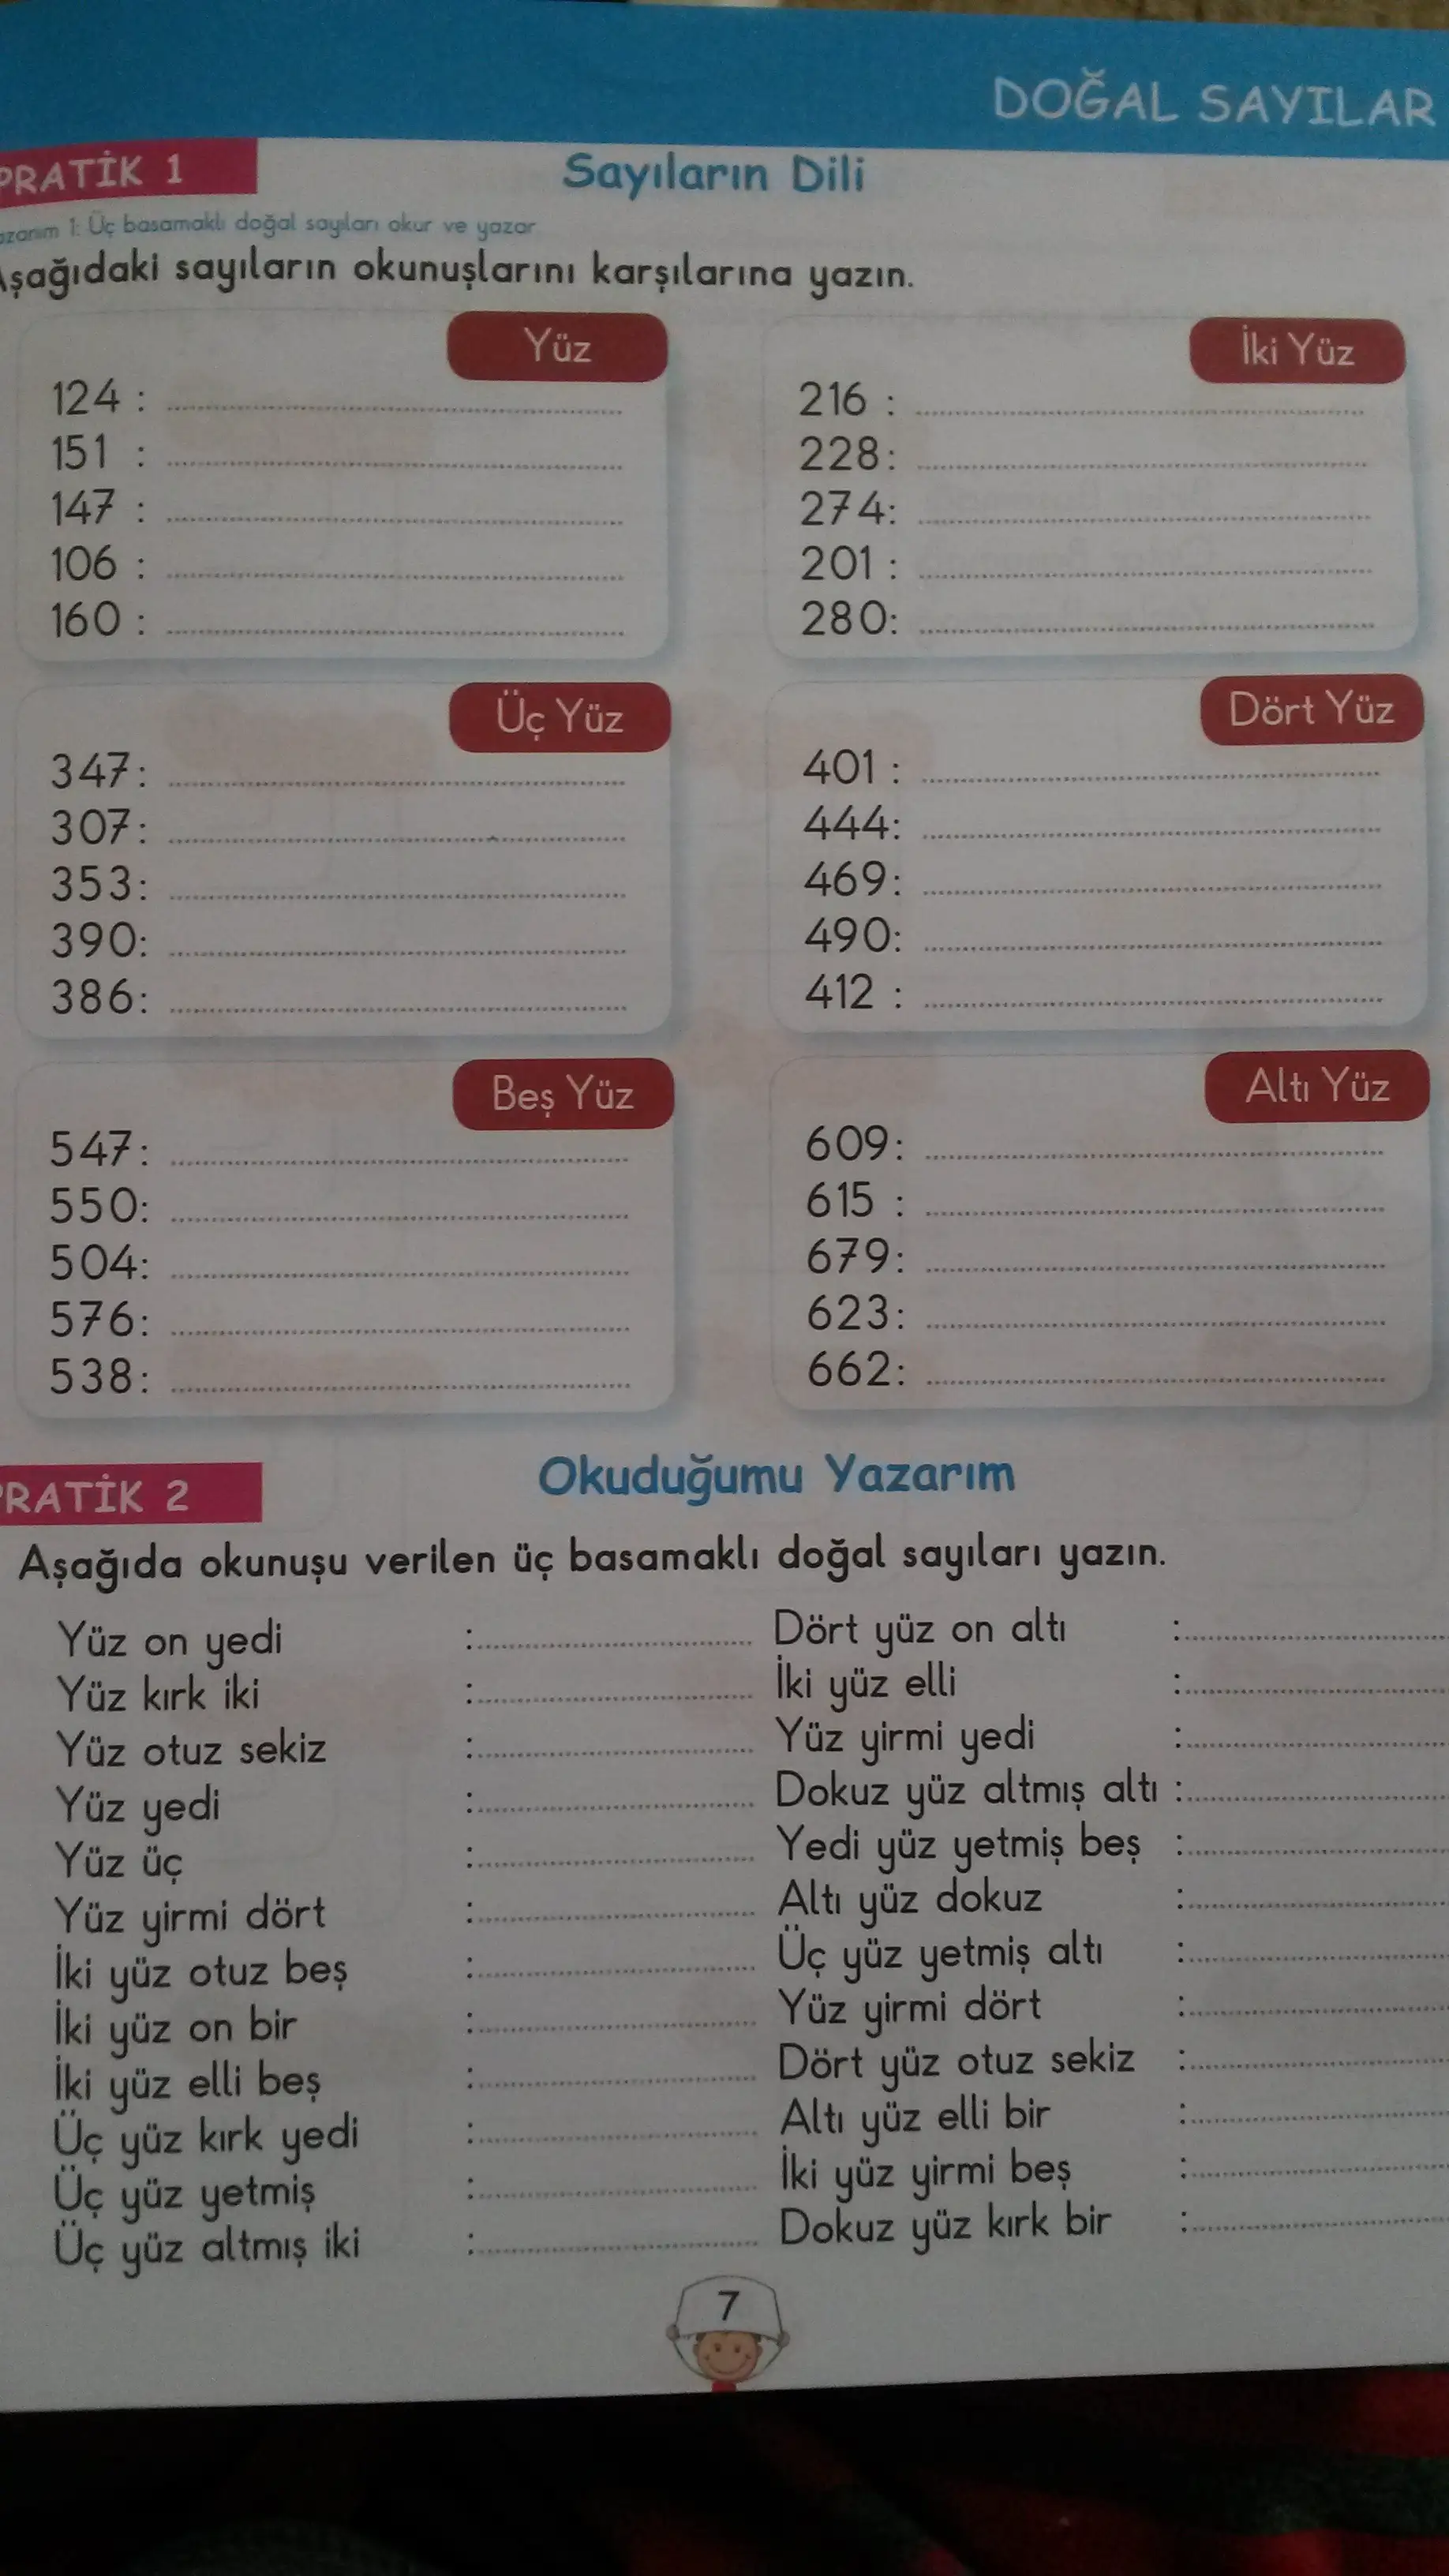 DOĞAL SAYILAR
PRATİK 1
Sayıların Dili
azanım 1: Üç basamaklı doğal sayıları okur ve yazar
Aşağıdaki sayıların okunuşlarını karşılarına yazın.
Yüz
124 :
151 :
147 :
106 :
160 :
İki Yüz
216 :
228:
274:
201 :
280:
Üç Yüz
347:
307:
353:
390:
386:
Dört Yüz
401 :
444:
469:
490:
412 :
Beş Yüz
547:
550:
504:
576:
538:
Altı Yüz
609:
615 :
679:
623:
662:
PRATİK 2
Okuduğumu Yazarım
Aşağıda okunuşu verilen üç basamaklı doğal sayıları yazın.
Yüz on yedi :
Yüz kırk iki :
Yüz otuz sekiz :
Yüz yedi :
Yüz üç :
Yüz yirmi dört :
İki yüz otuz beş :
İki yüz on bir :
İki yüz elli beş :
Üç yüz kırk yedi :
Üç yüz yetmiş :
Üç yüz altmış iki :
Dört yüz on altı :
İki yüz elli :
Yüz yirmi yedi :
Dokuz yüz altmış altı :
Yedi yüz yetmiş beş :
Altı yüz dokuz :
Üç yüz yetmiş altı :
Yüz yirmi dört :
Dört yüz otuz sekiz :
Altı yüz elli bir :
İki yüz yirmi beş :
Dokuz yüz kırk bir :
7